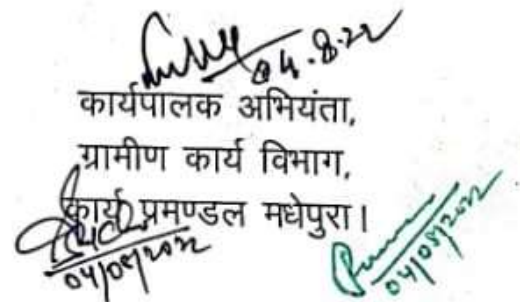 04.8.22
कार्यपालक अभियंता,
ग्रामीण कार्य विभाग,
कार्य प्रमण्डल मधेपुरा।
04/08/2022
04/08/2022